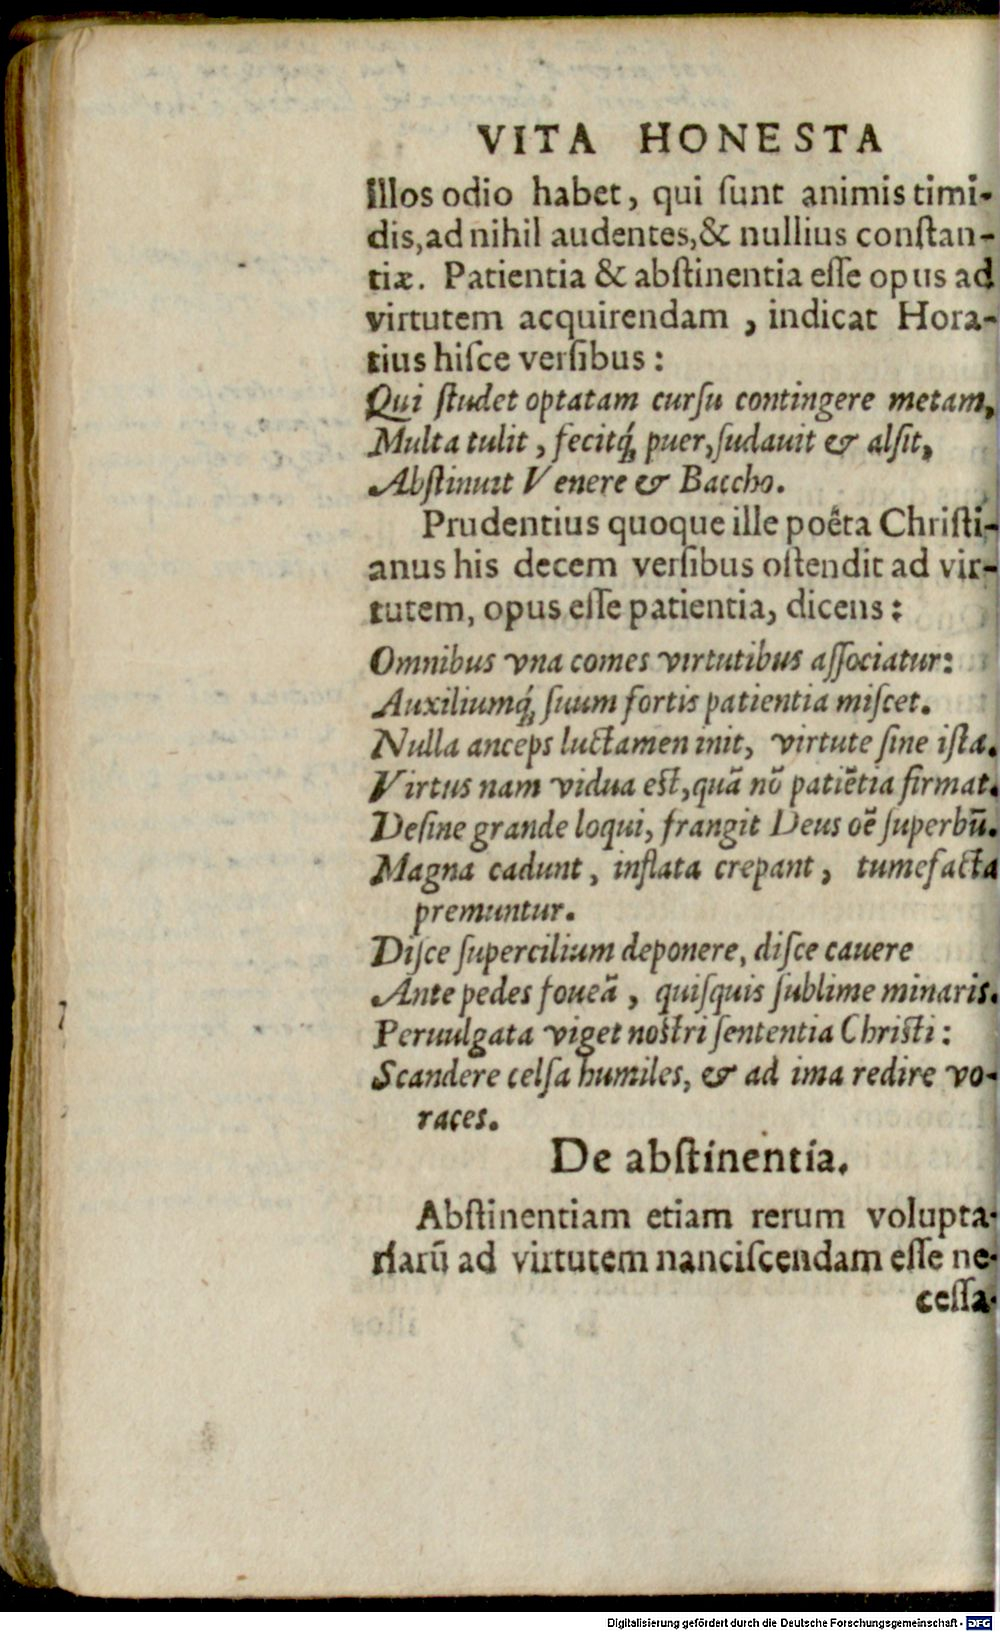 VITA HONESTA
Illos odio habet, qui ſunt animis timi-
dis, ad nihil audentes, & nullius conſtan-
tiæ. Patientia & abſtinentia eſſe opus ad
virtutem acquirendam , indicat Hora-
tius hiſce verſibus :
Qui ſtudet optatam curſu contingere metam,
Multa tulit , fecitq́; puer, ſudauit & alſit,
Abſtinuit Venere & Baccho.
Prudentius quoque ille poêta Chriſti-
anus his decem verſibus oſtendit ad vir-
tutem, opus eſſe patientia, dicens :
Omnibus vna comes virtutibus aſſociatur:
Auxiliumq́; ſuum fortis patientia miſcet.
Nulla anceps luctamen init, virtute ſine iſta.
Virtus nam vidua eſt, quã nõ patiẽtia firmat.
Deſine grande loqui, frangit Deus oẽ ſuperbũ.
Magna cadunt , inflata crepant , tumefacta
premuntur.
Diſce ſupercilium deponere, diſce cauere
Ante pedes foueã , quiſquis ſublime minaris.
Peruulgata viget noſtri ſententia Chriſti :
Scandere celſa humiles, & ad ima redire vo-
races.
De abſtinentia.
Abſtinentiam etiam rerum volupta-
riarũ ad virtutem nanciſcendam eſſe ne-
ceſſa-
Digitalisierung gefördert durch die Deutsche Forschungsgemeinschaft - DFG